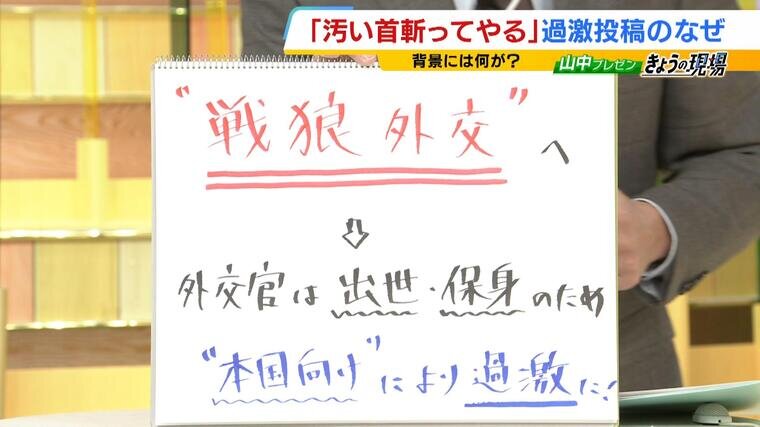 「汚い首斬ってやる」過激投稿のなぜ
背景には何が？
山中プレゼン
きょうの現場
"戦狼外交"へ
⇩
外交官は出世・保身のため
"本国向け"により過激に!